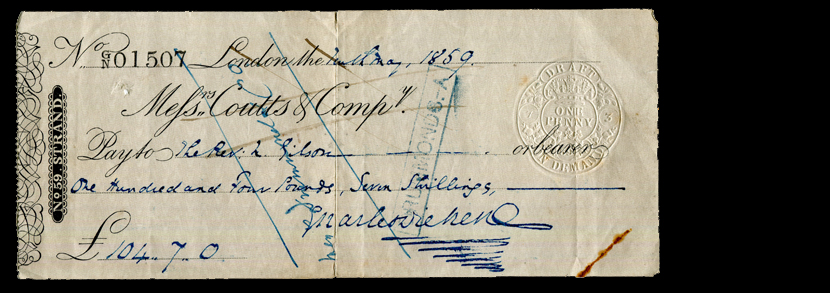 No G/N 01507 London the tenth May, 1859.
Messrs. Coutts & Compy.
Pay to The Rev: L Gilson or bearer
One Hundred and Four Pounds, Seven Shillings,
Charles Dickens
£104.. 7.. 0
No. 59, STRAND.
DRUMMONDS.-A
DRAFT
ONE PENNY
ON DEMAND